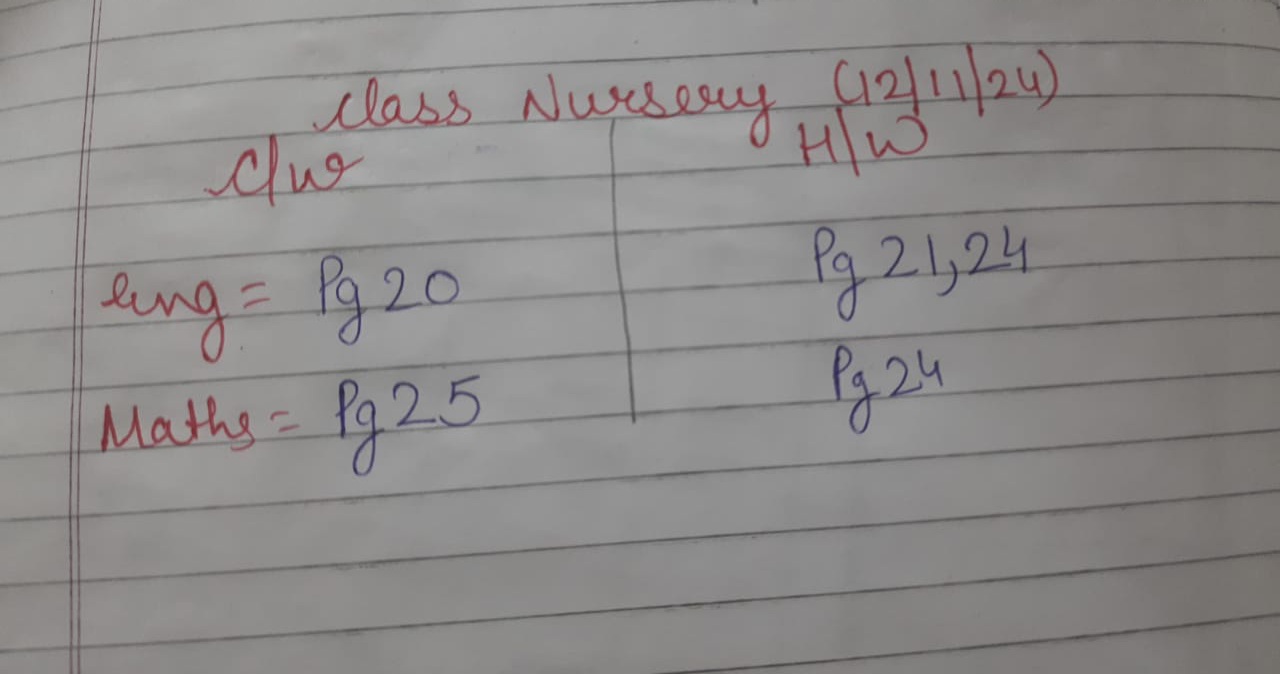 Class Nursery (12/11/24)
C/w H/W
Eng = Pg 20 Pg 21,24
Maths = Pg 25 Pg 24